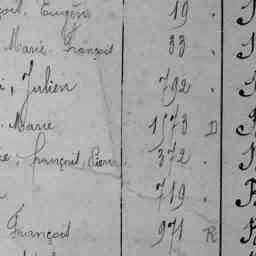 Eugène 19 .
Marie. François 33 .
Julien 792 .
. Marie 1573 D
, François, Pierre 372 .
719 .
François 971 R